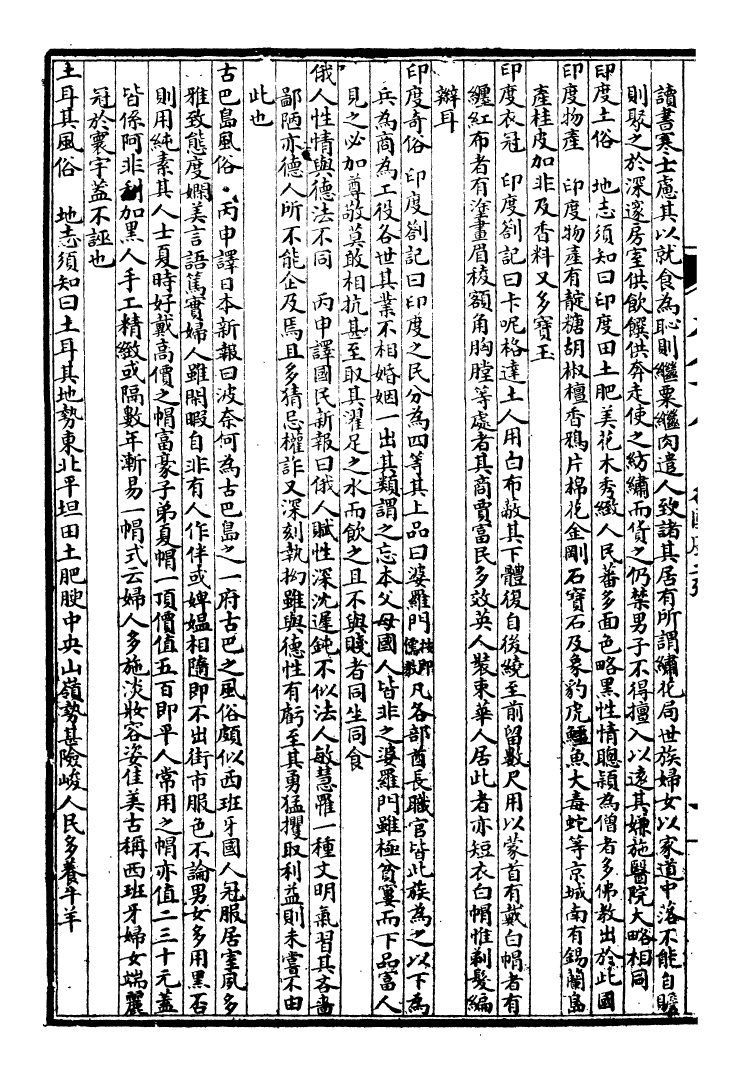 讀書寒士慮其以就食為恥則繼粟繼肉遣人致諸其居有所謂繡花局世族婦女以家道中落不能自贍
則聚之於深邃房室供飲饌供奔走使之紡繡而貨之仍禁男子不得擅入以遠其嫌施醫院大略相同
印度土俗　地志須知曰印度田土肥美花木秀緻人民蕃多面色略黑性情聰穎為僧者多佛教出於此國
印度物產　印度物產有靛糖胡椒檀香鴉片棉花金剛石寶石及象豹虎鱷魚大毒蛇等京城南有錫蘭島
產桂皮加非及香料又多寶玉
印度衣冠　印度劄記曰卡呢格達土人用白布蔽其下體復自後繞至前留數尺用以蒙首有戴白帽者有
纏紅布者有塗畫眉棱額角胸膛等處者其商賈富民多效英人裝束華人居此者亦短衣白帽惟剃髮編
辮耳
印度奇俗　印度劄記曰印度之民分為四等其上品曰婆羅門按即儒教凡各部酋長職官皆此族為之以下為
兵為商為工役各世其業不相婚姻一出其類謂之忘本父母國人皆非之婆羅門雖極貧窶而下品富人
見之必加尊敬莫敢相抗甚至取其濯足之水而飲之且不與賤者同坐同食
俄人性情與德法不同　丙申譯國民新報曰俄人賦性深沈遲鈍不似法人敏慧罹一種文明氣習其吝嗇
鄙陋亦德人所不能企及焉且多猜忌權詐又深刻執拗雖與德性有虧至其勇猛攫取利益則未嘗不由
此也
古巴島風俗　丙申譯日本新報曰波奈何為古巴島之一府古巴之風俗頗似西班牙國人冠服居室夙多
雅致態度嫻美言語篤實婦人雖閑暇自非有人作伴或婢媼相隨即不出街市服色不論男女多用黑石
則用純素其人士夏時好戴高價之帽富豪子弟夏帽一頂價值五百即平人常用之帽亦值二三十元蓋
皆係阿非利加黑人手工精緻或隔數年漸易一帽式云婦人多施淡妝容姿佳美古稱西班牙婦女端麗
冠於寰宇蓋不誣也
土耳其風俗　地志須知曰土耳其地勢東北平坦田土肥腴中央山嶺勢甚險峻人民多養牛羊